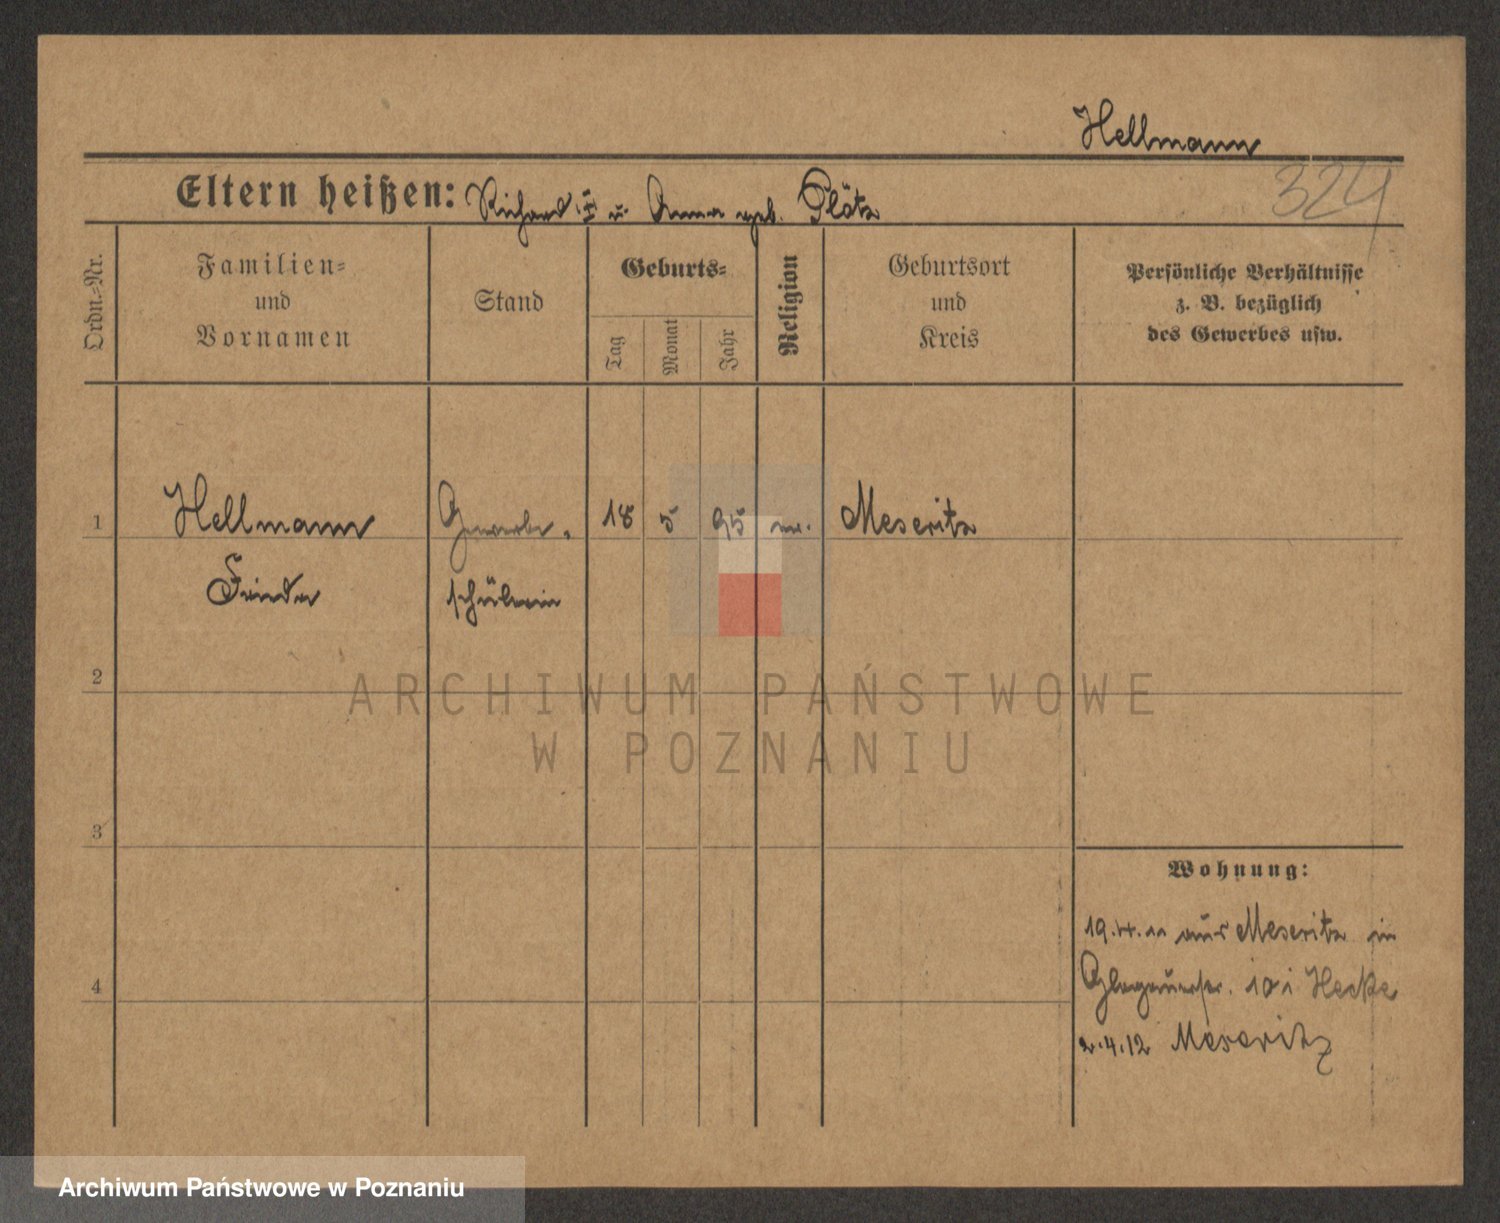 Hellmann
324
Eltern heißen: Richard u. Anna geb. Plötz
Ordn.-Nr.
Familien-
und
Vornamen
Stand
Geburts-
Tag
Monat
Jahr
Religion
Geburtsort
und
Kreis
Persönliche Verhältnisse
z. B. bezüglich
des Gewerbes usw.
1 Hellmann Gewerbe- 18 5 95 Meseritz
Frieda schülerin
2
3
4
Wohnung:
19.4.11 aus Meseritz in
Glogauerstr. 101 Hecke
2.4.12 Meseritz
ARCHIWUM PAŃSTWOWE
W POZNANIU
Archiwum Państwowe w Poznaniu